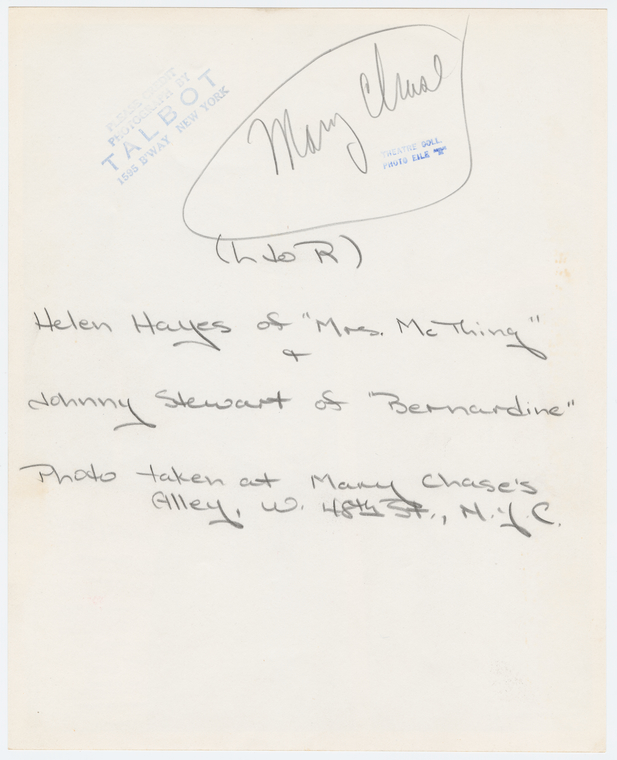 PLEASE CREDIT
PHOTOGRAPH BY
TALBOT
1595 B'WAY NEW YORK
Mary Chase
THEATRE COLL.
PHOTO FILE "B"
(L to R)
Helen Hayes of "Mrs. McThing"
+
Johnny Stewart of "Bernardine"
Photo taken at Mary Chase's
Alley, W. 48th St., N.Y.C.